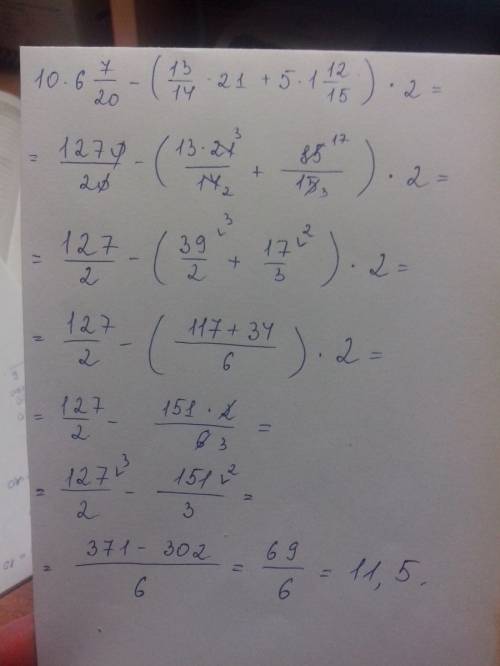 10 · 6 7/20 - (13/14 · 21 + 5 · 1 12/15) · 2 =
= 1270/20 - (13 · 21 3/14 2 + 85 17/15 3) · 2 =
= 127/2 - (39 3/2 + 17 2/3) · 2 =
= 127/2 - (117 + 34/6) · 2 =
= 127/2 - 151 · 2/6 3 =
= 127 3/2 - 151 2/3 =
= 371 - 302/6 = 69/6 = 11,5.